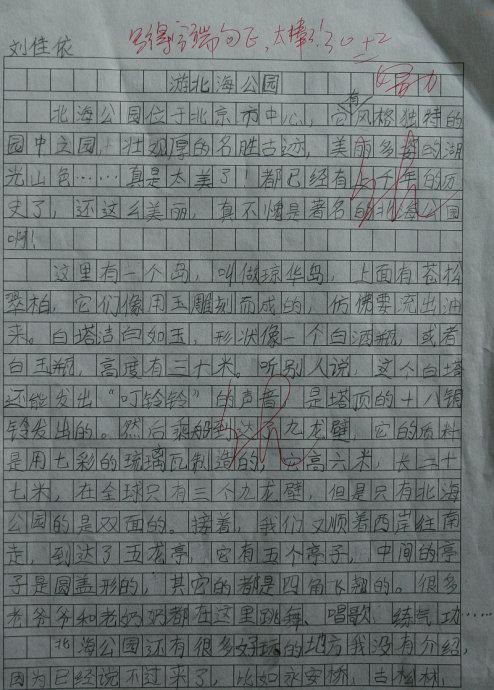 刘佳依
写得字端句正,太棒了!30+2
游北海公园
北海公园位于北京市中心,它有风格独特的
园中之园,壮观厚的名胜古迹,美丽多姿的湖
光山色……真是太美了!都已经有上千年的历
史了,还这么美丽,真不愧是著名的北海公园
啊!
这里有一个岛,叫做琼华岛,上面有苍松
翠柏,它们像用玉雕刻而成的,仿佛要流出油
来。白塔洁白如玉,形状像一个白酒瓶,或者
白玉瓶,高度有三十米。听别人说,这个白塔
还能发出“叮铃铃”的声音,是塔顶的十八铜
铃发出的。然后乘船到达了九龙壁,它的质料
是用七彩的琉璃瓦制造的,高六米,长二十
七米,在全球只有三个九龙壁,但是只有北海
公园的是双面的。接着,我们又顺着西岸往南
走,到达了五龙亭,它有五个亭子,中间的亭
子是圆盖形的,其它的都是四角飞翘的。很多
老爷爷和老奶奶都在这里跳舞、唱歌、练气功……
北海公园还有很多好玩的地方我没有介绍,
因为已经说不过来了,比如永安桥,古松林,